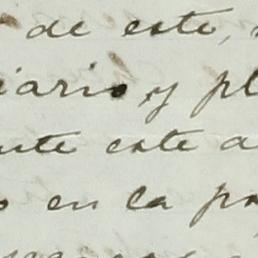 de este,
iario, y pl
nte este a
o en la po